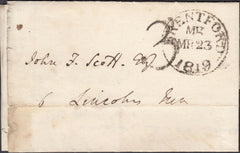 BRENTFORD
MR 23
1819
3
John F. Scott Esq
6 Lincolns Inn